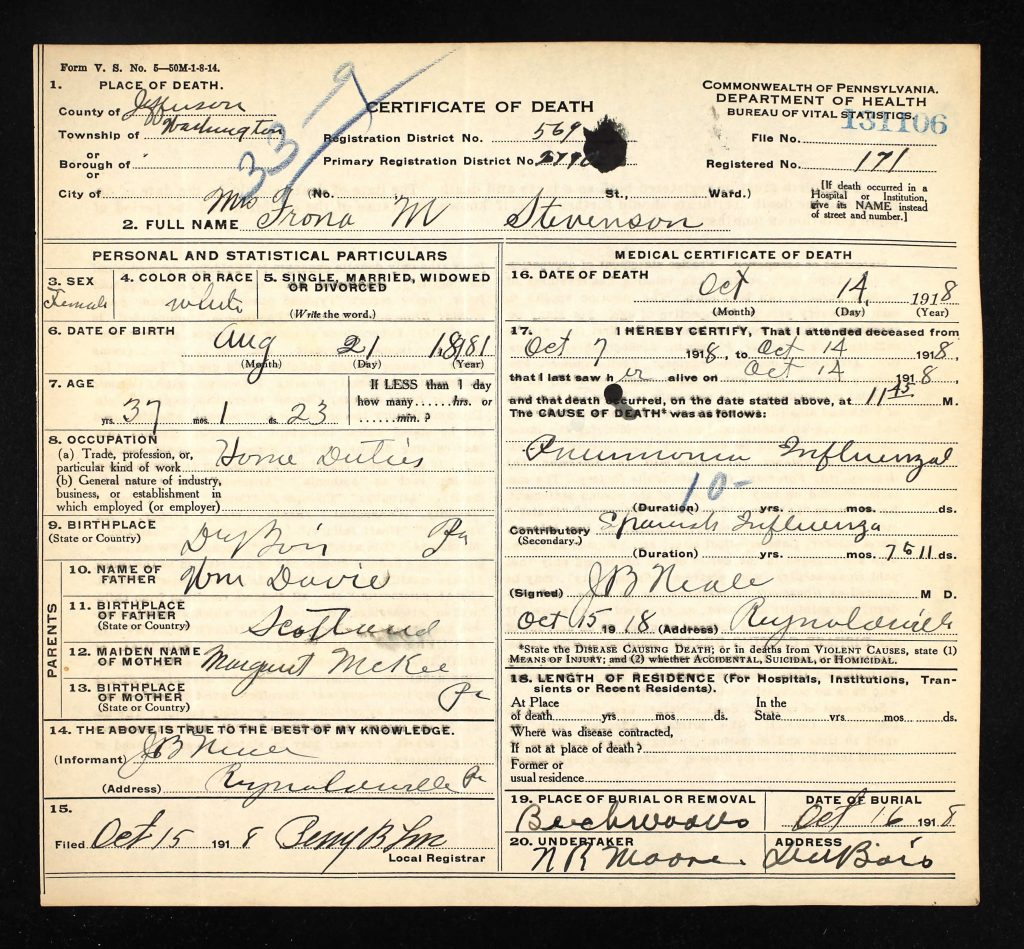 Form V. S. No. 5—50M-1-8-14.
1. PLACE OF DEATH.
County of Jefferson
Township of Washington
or
Borough of
or
City of
33 9
CERTIFICATE OF DEATH
Registration District No. 569
Primary Registration District No.
(No. St., Ward.)
COMMONWEALTH OF PENNSYLVANIA.
DEPARTMENT OF HEALTH
BUREAU OF VITAL STATISTICS.
File No. 131106
Registered No. 171
[If death occurred in a
Hospital or Institution,
give its NAME instead
of street and number.]
2. FULL NAME Mrs Frona M Stevenson
PERSONAL AND STATISTICAL PARTICULARS
3. SEX
Female
4. COLOR OR RACE
white
5. SINGLE, MARRIED, WIDOWED
OR DIVORCED
(Write the word.)
6. DATE OF BIRTH
Aug 21 1881
(Month) (Day) (Year)
7. AGE
37 yrs. 1 mos. 23 ds.
If LESS than 1 day
how many......hrs. or
......min. ?
8. OCCUPATION
(a) Trade, profession, or,
particular kind of work Home Duties
(b) General nature of industry,
business, or establishment in
which employed (or employer)
9. BIRTHPLACE
(State or Country)
DuBois Pa
PARENTS
10. NAME OF
FATHER Wm Davie
11. BIRTHPLACE
OF FATHER
(State or Country) Scotland
12. MAIDEN NAME
OF MOTHER Margaret McKee
13. BIRTHPLACE
OF MOTHER
(State or Country) Pa
14. THE ABOVE IS TRUE TO THE BEST OF MY KNOWLEDGE.
(Informant) J B
(Address) Reynoldsville Pa
15.
Filed Oct 15 1918 Perry B
Local Registrar
MEDICAL CERTIFICATE OF DEATH
16. DATE OF DEATH
Oct 14, 1918
(Month) (Day) (Year)
17. I HEREBY CERTIFY, That I attended deceased from
Oct 7 1918, to Oct 14 1918,
that I last saw her alive on Oct 14 1918,
and that death occurred, on the date stated above, at 11 45 M.
The CAUSE OF DEATH* was as follows:
Pneumonia Influenzal
10-
(Duration) yrs. mos. ds.
Contributory Spanish Influenza
(Secondary.)
(Duration) yrs. mos. 7 to 11 ds.
(Signed) J B Neale M D.
Oct 15 1918 (Address) Reynoldsville
*State the DISEASE CAUSING DEATH; or in deaths from VIOLENT CAUSES, state (1)
MEANS OF INJURY; and (2) whether ACCIDENTAL, SUICIDAL, or HOMICIDAL.
18. LENGTH OF RESIDENCE (For Hospitals, Institutions, Tran-
sients or Recent Residents).
At Place In the
of death yrs mos ds. State yrs mos ds.
Where was disease contracted,
If not at place of death?
Former or
usual residence
19. PLACE OF BURIAL OR REMOVAL
Beechwoods
DATE OF BURIAL
Oct 16 1918
20. UNDERTAKER
N R Moore.
ADDRESS
DuBois